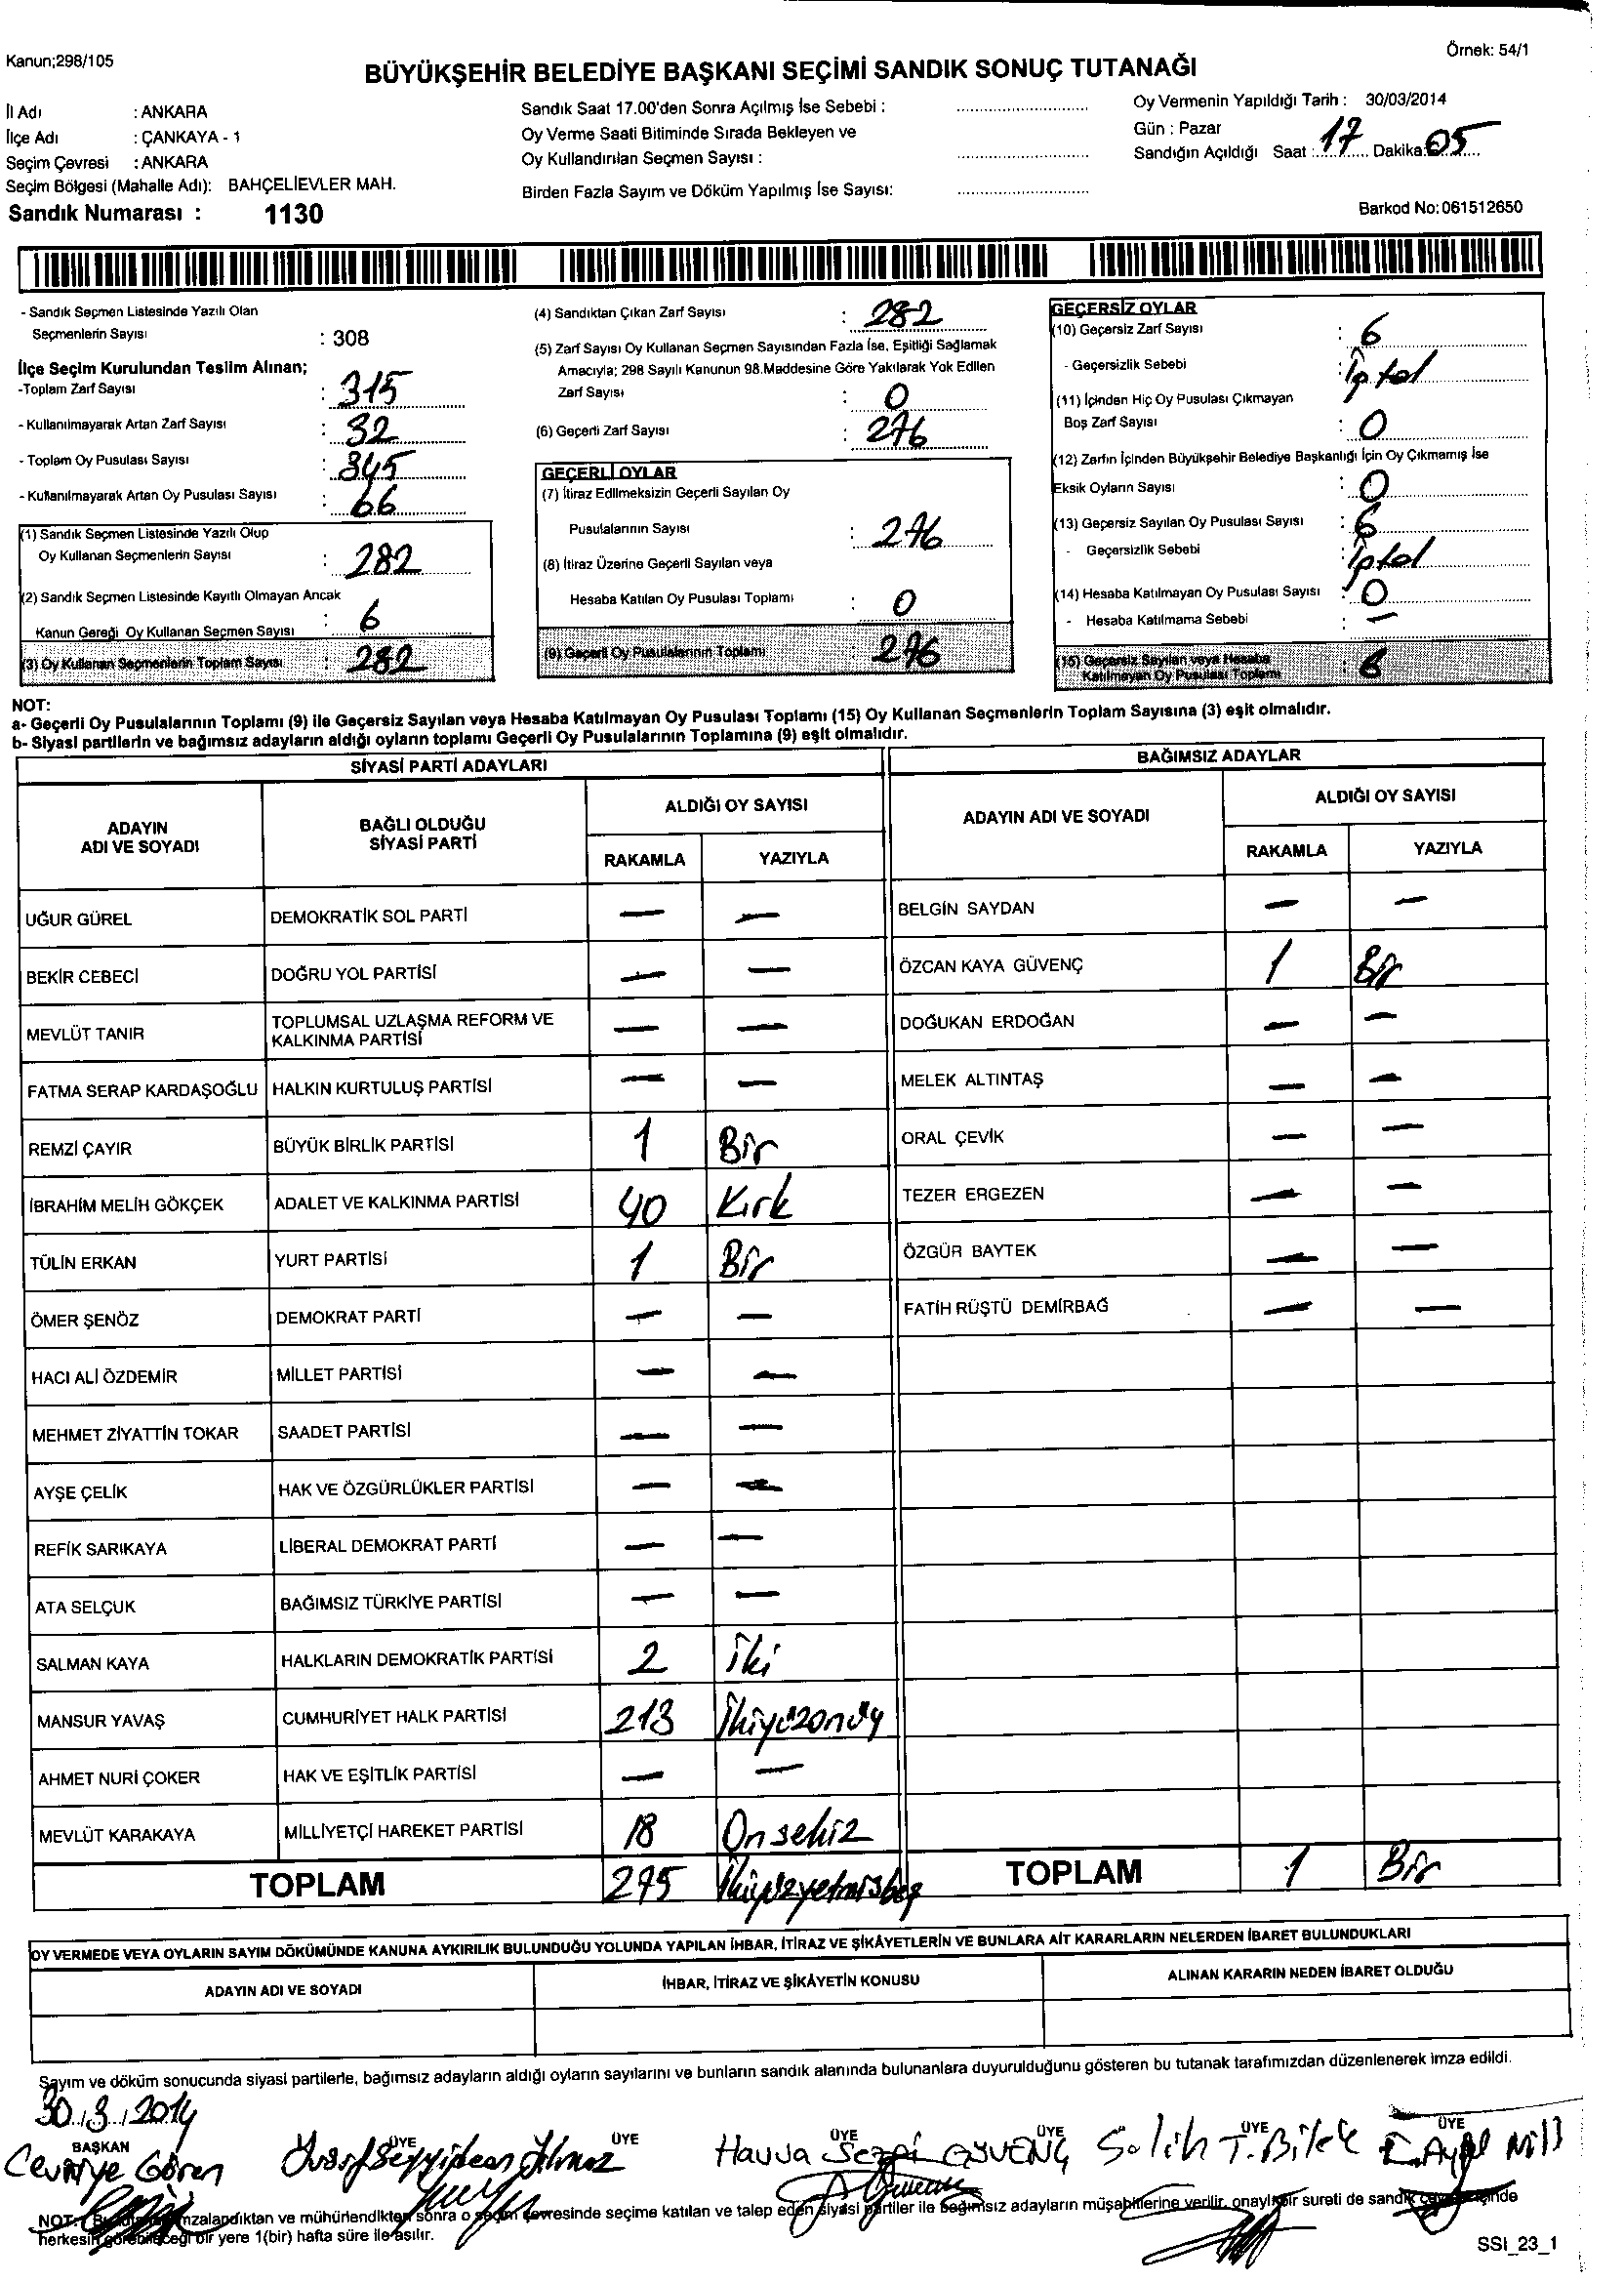 Kanun;298/105
Örnek: 54/1
BÜYÜKŞEHİR BELEDİYE BAŞKANI SEÇİMİ SANDIK SONUÇ TUTANAĞI
İl Adı : ANKARA
İlçe Adı : ÇANKAYA - 1
Seçim Çevresi : ANKARA
Seçim Bölgesi (Mahalle Adı): BAHÇELİEVLER MAH.
Sandık Numarası : 1130
Sandık Saat 17.00'den Sonra Açılmış İse Sebebi :
Oy Verme Saati Bitiminde Sırada Bekleyen ve
Oy Kullandırılan Seçmen Sayısı :
Birden Fazla Sayım ve Döküm Yapılmış İse Sayısı:
Oy Vermenin Yapıldığı Tarih : 30/03/2014
Gün : Pazar
Sandığın Açıldığı Saat : 17 Dakika: 05
Barkod No: 061512650
- Sandık Seçmen Listesinde Yazılı Olan
Seçmenlerin Sayısı : 308
İlçe Seçim Kurulundan Teslim Alınan;
-Toplam Zarf Sayısı : 315
- Kullanılmayarak Artan Zarf Sayısı : 32
- Toplam Oy Pusulası Sayısı : 345
- Kullanılmayarak Artan Oy Pusulası Sayısı : 66
(1) Sandık Seçmen Listesinde Yazılı Olup
Oy Kullanan Seçmenlerin Sayısı : 282
(2) Sandık Seçmen Listesinde Kayıtlı Olmayan Ancak
Kanun Gereği Oy Kullanan Seçmen Sayısı : 6
(3) Oy Kullanan Seçmenlerin Toplam Sayısı : 282
(4) Sandıktan Çıkan Zarf Sayısı : 282
(5) Zarf Sayısı Oy Kullanan Seçmen Sayısından Fazla İse, Eşitliği Sağlamak
Amacıyla; 298 Sayılı Kanunun 98.Maddesine Göre Yakılarak Yok Edilen
Zarf Sayısı : 0
(6) Geçerli Zarf Sayısı : 276
GEÇERLİ OYLAR
(7) İtiraz Edilmeksizin Geçerli Sayılan Oy
Pusulalarının Sayısı : 276
(8) İtiraz Üzerine Geçerli Sayılan veya
Hesaba Katılan Oy Pusulası Toplamı : 0
(9) Geçerli Oy Pusulalarının Toplamı : 276
GEÇERSİZ OYLAR
(10) Geçersiz Zarf Sayısı : 6
- Geçersizlik Sebebi : İptal
(11) İçinden Hiç Oy Pusulası Çıkmayan
Boş Zarf Sayısı : 0
(12) Zarfın İçinden Büyükşehir Belediye Başkanlığı İçin Oy Çıkmamış İse
Eksik Oyların Sayısı : 0
(13) Geçersiz Sayılan Oy Pusulası Sayısı : 6
- Geçersizlik Sebebi : İptal
(14) Hesaba Katılmayan Oy Pusulası Sayısı : 0
- Hesaba Katılmama Sebebi : —
(15) Geçersiz Sayılan veya Hesaba
Katılmayan Oy Pusulası Toplamı : 6
NOT:
a- Geçerli Oy Pusulalarının Toplamı (9) ile Geçersiz Sayılan veya Hesaba Katılmayan Oy Pusulası Toplamı (15) Oy Kullanan Seçmenlerin Toplam Sayısına (3) eşit olmalıdır.
b- Siyasi partilerin ve bağımsız adayların aldığı oyların toplamı Geçerli Oy Pusulalarının Toplamına (9) eşit olmalıdır.
SİYASİ PARTİ ADAYLARI
ADAYIN ADI VE SOYADI BAĞLI OLDUĞU SİYASİ PARTİ ALDIĞI OY SAYISI
RAKAMLA YAZIYLA
UĞUR GÜREL DEMOKRATİK SOL PARTİ — —
BEKİR CEBECİ DOĞRU YOL PARTİSİ — —
MEVLÜT TANIR TOPLUMSAL UZLAŞMA REFORM VE KALKINMA PARTİSİ — —
FATMA SERAP KARDAŞOĞLU HALKIN KURTULUŞ PARTİSİ — —
REMZİ ÇAYIR BÜYÜK BİRLİK PARTİSİ 1 Bir
İBRAHİM MELİH GÖKÇEK ADALET VE KALKINMA PARTİSİ 40 Kırk
TÜLİN ERKAN YURT PARTİSİ 1 Bir
ÖMER ŞENÖZ DEMOKRAT PARTİ — —
HACI ALİ ÖZDEMİR MİLLET PARTİSİ — —
MEHMET ZİYATTİN TOKAR SAADET PARTİSİ — —
AYŞE ÇELİK HAK VE ÖZGÜRLÜKLER PARTİSİ — —
REFİK SARIKAYA LİBERAL DEMOKRAT PARTİ — —
ATA SELÇUK BAĞIMSIZ TÜRKİYE PARTİSİ — —
SALMAN KAYA HALKLARIN DEMOKRATİK PARTİSİ 2 İki
MANSUR YAVAŞ CUMHURİYET HALK PARTİSİ 213 İkiyüzonüç
AHMET NURİ ÇOKER HAK VE EŞİTLİK PARTİSİ — —
MEVLÜT KARAKAYA MİLLİYETÇİ HAREKET PARTİSİ 18 Onsekiz
TOPLAM 275 İkiyüzyetmişbeş
BAĞIMSIZ ADAYLAR
ADAYIN ADI VE SOYADI ALDIĞI OY SAYISI
RAKAMLA YAZIYLA
BELGİN SAYDAN — —
ÖZCAN KAYA GÜVENÇ 1 Bir
DOĞUKAN ERDOĞAN — —
MELEK ALTINTAŞ — —
ORAL ÇEVİK — —
TEZER ERGEZEN — —
ÖZGÜR BAYTEK — —
FATİH RÜŞTÜ DEMİRBAĞ — —
TOPLAM 1 Bir
OY VERMEDE VEYA OYLARIN SAYIM DÖKÜMÜNDE KANUNA AYKIRILIK BULUNDUĞU YOLUNDA YAPILAN İHBAR, İTİRAZ VE ŞİKÂYETLERİN VE BUNLARA AİT KARARLARIN NELERDEN İBARET BULUNDUKLARI
ADAYIN ADI VE SOYADI İHBAR, İTİRAZ VE ŞİKÂYETİN KONUSU ALINAN KARARIN NEDEN İBARET OLDUĞU
Sayım ve döküm sonucunda siyasi partilerle, bağımsız adayların aldığı oyların sayılarını ve bunların sandık alanında bulunanlara duyurulduğunu gösteren bu tutanak tarafımızdan düzenlenerek imza edildi.
30/3/2014
BAŞKAN ÜYE ÜYE ÜYE ÜYE ÜYE ÜYE
Gören Yılmaz Havva Sezgi GÜVENÇ Salih T. Bilek
NOT: mzalandıktan ve mühürlendikten sonra o seçim çevresinde seçime katılan ve talep eden siyasi partiler ile bağımsız adayların müşahitlerine verilir, onaylı bir sureti de sandık çevresi içinde
herkesin görebileceği bir yere 1(bir) hafta süre ile asılır.
SSI_23_1